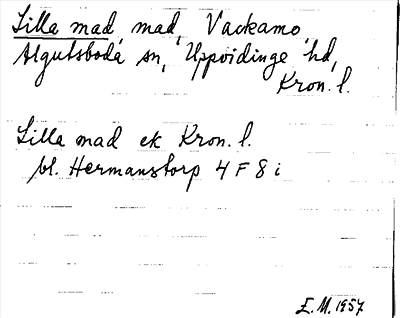 Lilla mad, mad, Vackamo,
Algutsboda sn, Uppvidinge hd,
Kron. l.
Lilla mad ek Kron. l.
bl. Hermanstorp 4 F 8 i
E.M. 1957